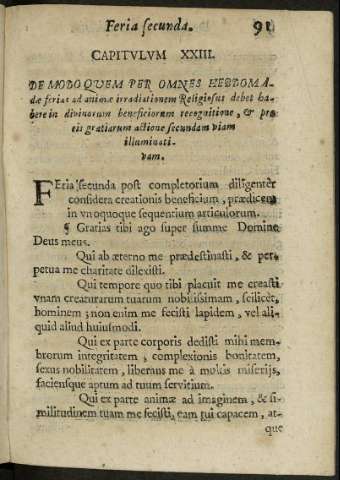 Feria secunda. 91
CAPITVLVM XXIII.
DE MODO QVEM PER OMNES HEBDOMA-
dæ ferias ad animæ irradiationem Religiosus debet ha-
bere in diuinorum beneficiorum recognitione, & pro
eis gratiarum actione secundam viam
illuminati-
vam.
FEria secunda post completorium diligenter
considera creationis beneficium, prædicens
in vnoquoque sequentium articulorum.
¶ Gratias tibi ago super summe Domine
Deus meus.
Qui ab æterno me prædestinasti, & per-
petua me charitate dilexisti.
Qui tempore quo tibi placuit me creasti
vnam creaturarum tuarum nobilissimam, scilicet,
hominem; non enim me fecisti lapidem, vel ali-
quid aliud huiusmodi.
Qui ex parte corporis dedisti mihi mem-
brorum integritatem, complexionis bonitatem,
sexus nobilitatem, liberans me à multis miserijs,
faciensque aptum ad tuum seruitium.
Qui ex parte animæ ad imaginem, & si-
militudinem tuam me fecisti, eam tui capacem, at-
que